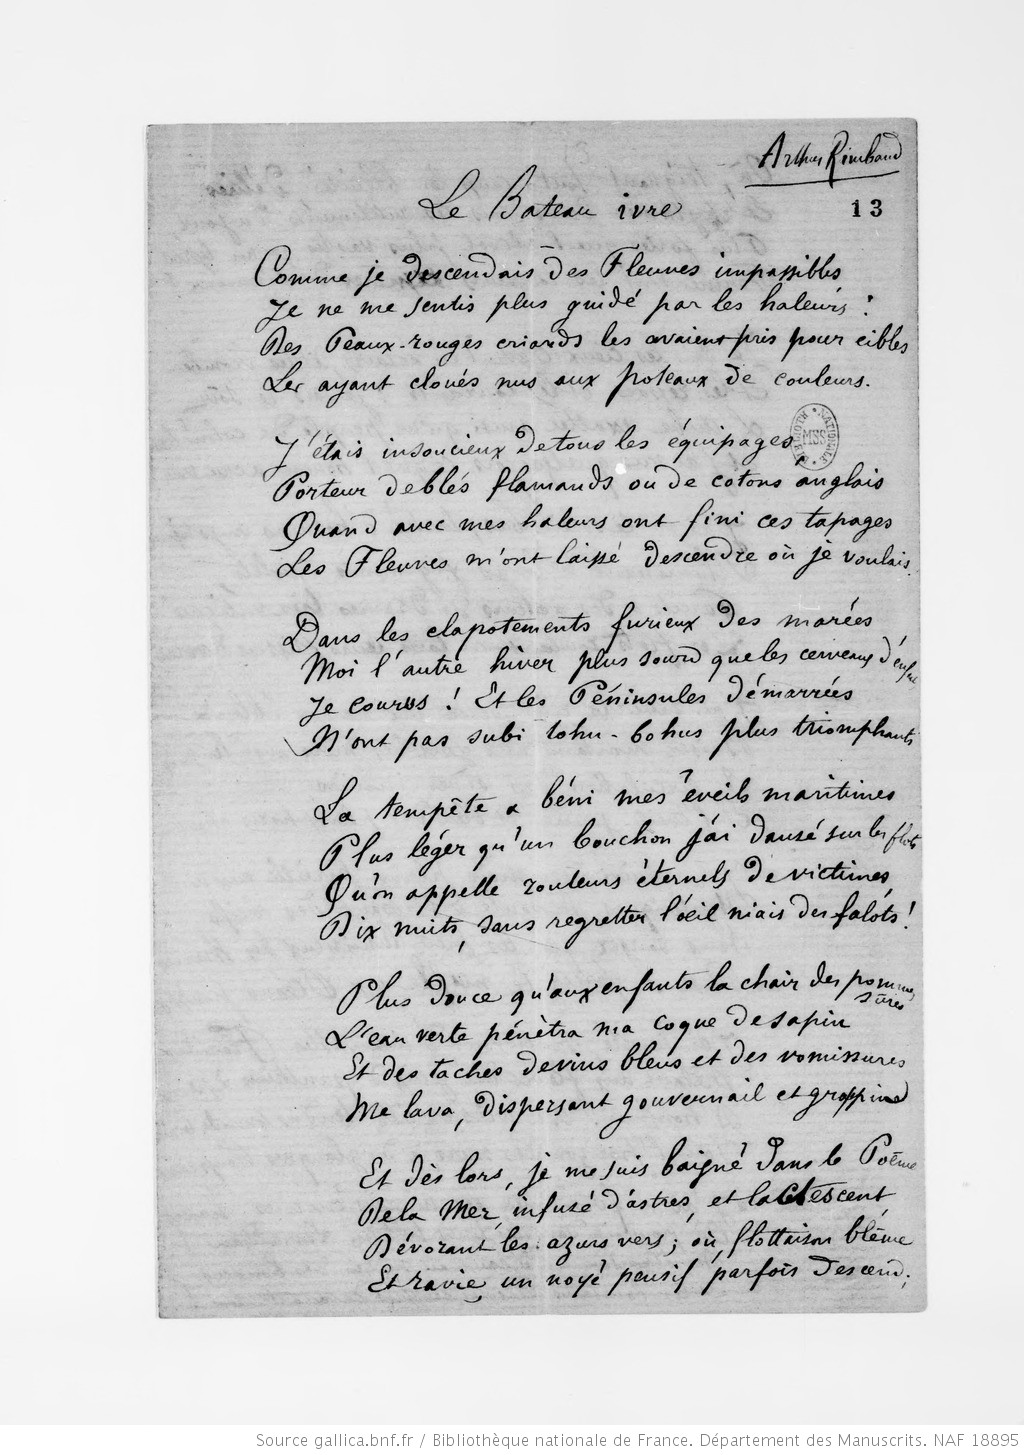 Arthur Rimbaud
13
Le Bateau ivre
Comme je descendais des Fleuves impassibles
Je ne me sentis plus guidé par les haleurs :
Des Peaux-rouges criards les avaient pris pour cibles
Les ayant cloués nus aux poteaux de couleurs.
J'étais insoucieux de tous les équipages,
Porteur de blés flamands ou de cotons anglais
Quand avec mes haleurs ont fini ces tapages
Les Fleuves m'ont laissé descendre où je voulais.
BIBLIOTH. NATIONALE MSS
Dans les clapotements furieux des marées
Moi l'autre hiver plus sourd que les cerveaux d'enfants
Je courus ! Et les Péninsules démarrées
N'ont pas subi tohu-bohus plus triomphants
La tempête a béni mes éveils maritimes
Plus léger qu'un bouchon j'ai dansé sur les flots
Qu'on appelle rouleurs éternels de victimes
Dix nuits, sans regretter l'œil niais des falots !
Plus douce qu'aux enfants la chair des pommes
sûres
L'eau verte pénétra ma coque de sapin
Et des taches de vins bleus et des vomissures
Me lava, dispersant gouvernail et grappin
Et dès lors, je me suis baigné dans le Poème
De la Mer, infusé d'astres, et lactescent,
Dévorant les azurs vers ; où, flottaison blême
Et ravie, un noyé pensif parfois descend ;
Source gallica.bnf.fr / Bibliothèque nationale de France. Département des Manuscrits. NAF 18895